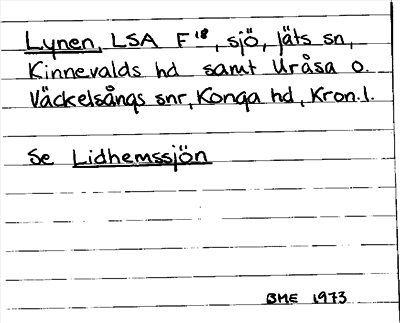 Lynen, LSA F¹⁸, sjö, Jäts sn,
Kinnevalds hd samt Uråsa o.
Väckelsångs snr, Konga hd, Kron.l.
Se Lidhemssjön
BME 1973